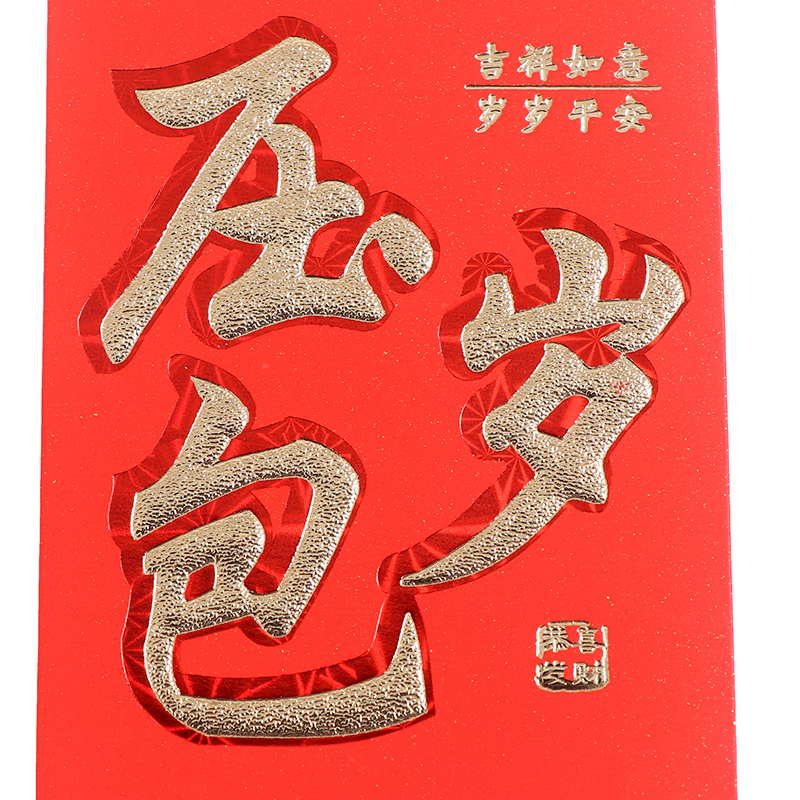 压岁包
吉祥如意
岁岁平安
恭喜
发财